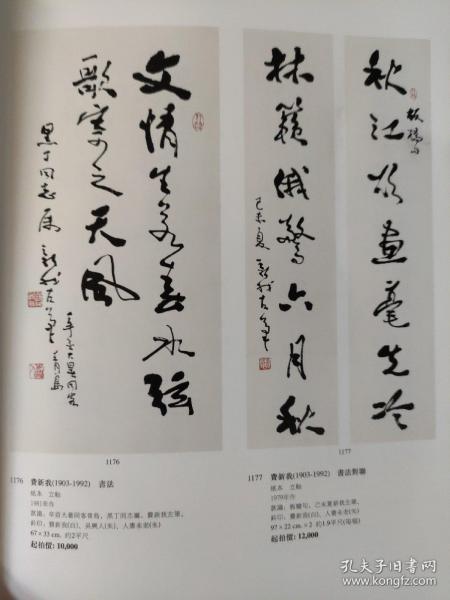 文情生若春水弦
歌寄之天風
黑丁同志屬 新我左筆
辛酉大暑同客青島
秋江欲畫毫先冷
板橋句
林籟俄驚六月秋
己未夏 新我左筆
1176
1177
1176 費新我(1903-1992) 書法
紙本 立軸
1981年作
款識：辛酉大暑同客青島，黑丁同志屬，費新我左筆。
鈐印：費新我(白)、吳興人(朱)、人書未老(朱)
67×33 cm. 約2平尺
起拍價: 10,000
1177 費新我(1903-1992) 書法對聯
紙本 立軸
1979年作
款識：板橋句，己未夏新我左筆。
鈐印：費新我(白)、人書未老(朱)
97×22 cm.×2 約1.9平尺(每幅)
起拍價: 12,000
孔夫子旧书网